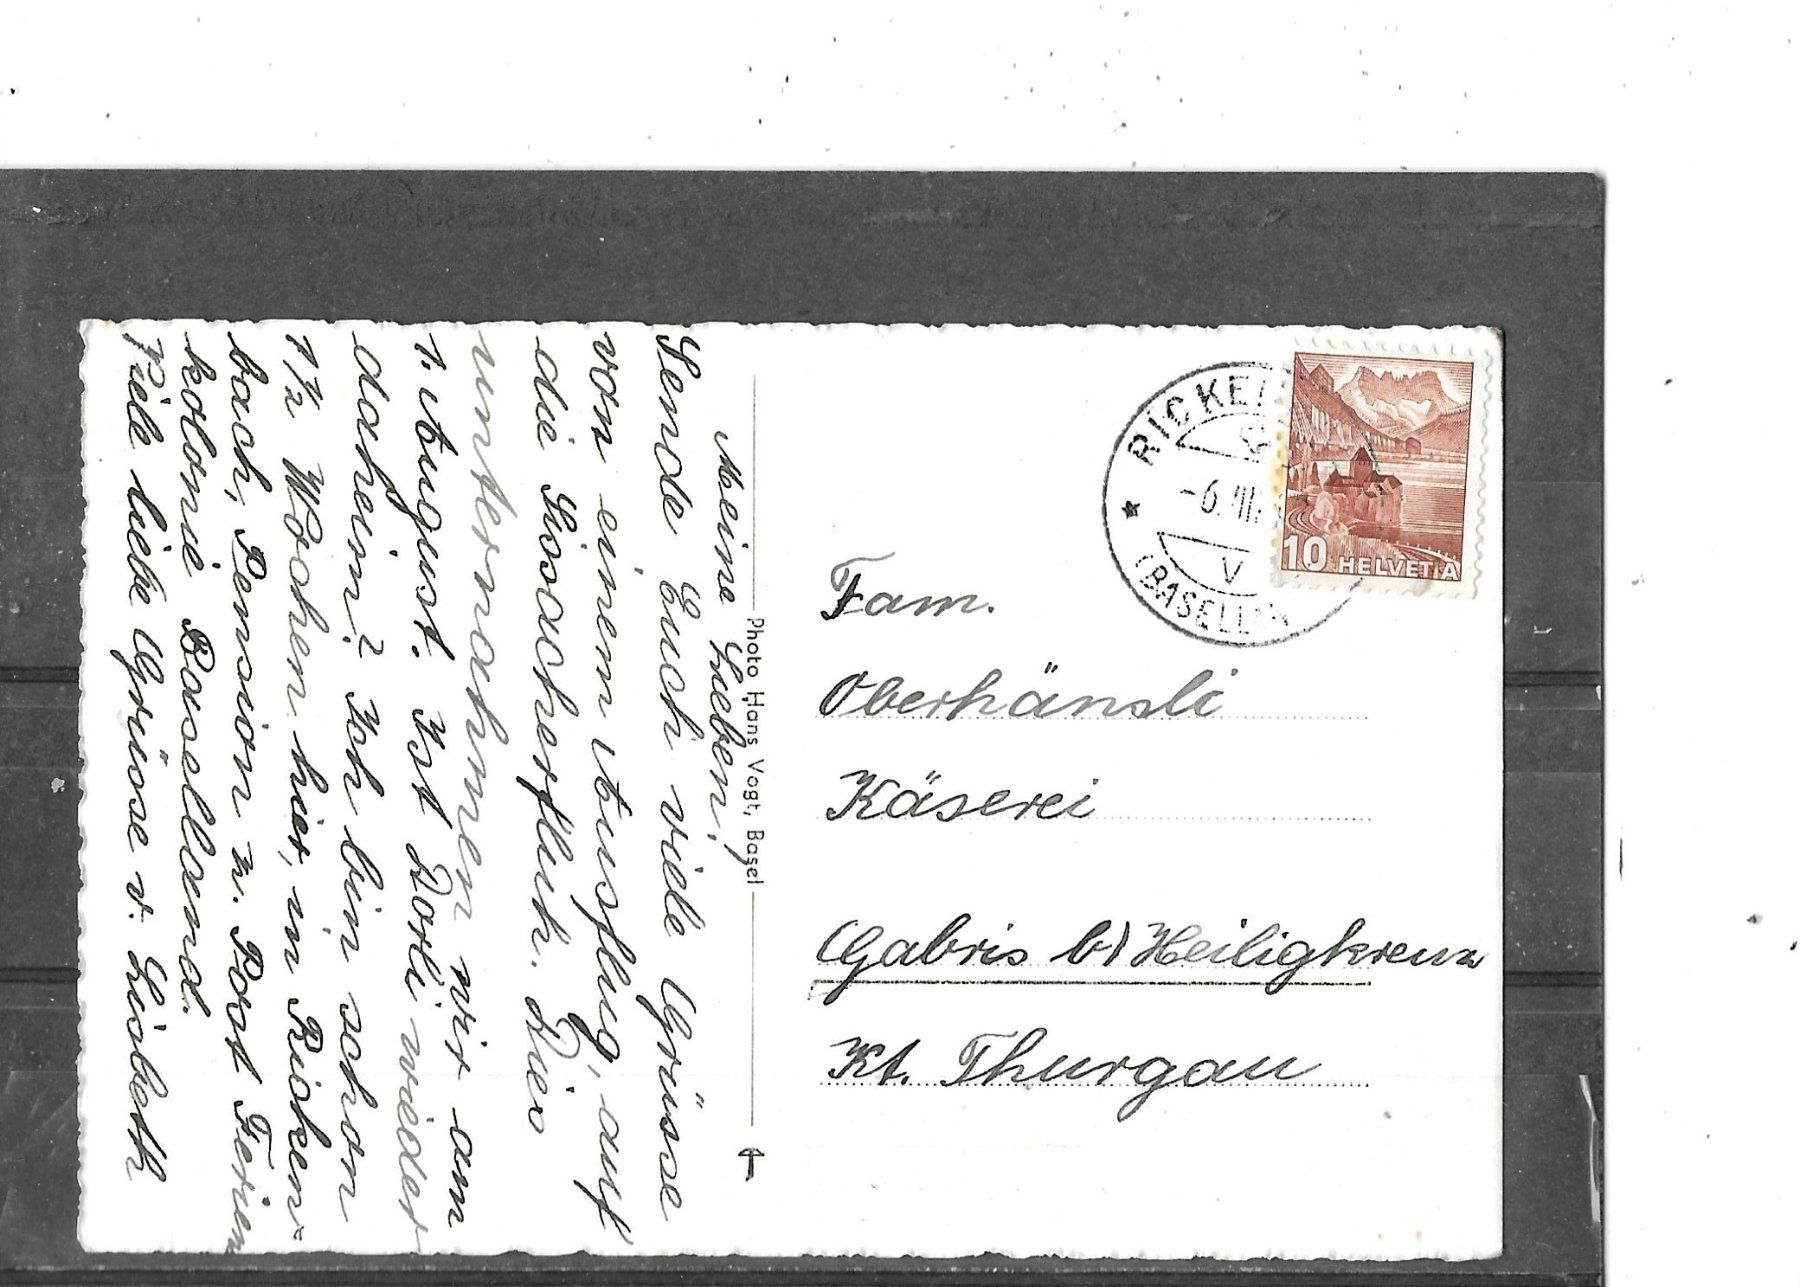 Meine Lieben!
Sende Euch viele Grüsse
von einem Ausflug, auf
die Sissacherfluh. Dies
unternahmen wir am
1. August. Ist Dorli wieder
daheim? Ich bin schon
1½ Wochen hier, in Ricken=
bach, Pension z. Post Ferien
kolonie Baselland.
Viele liebe Grüsse v. Lisbeth
Photo Hans Vogt, Basel
RICKE
-6. VIII.
V
(BASELL
10 HELVETIA
Fam.
Oberhänsli
Käserei
Gabris b/Heiligkreuz
Kt. Thurgau